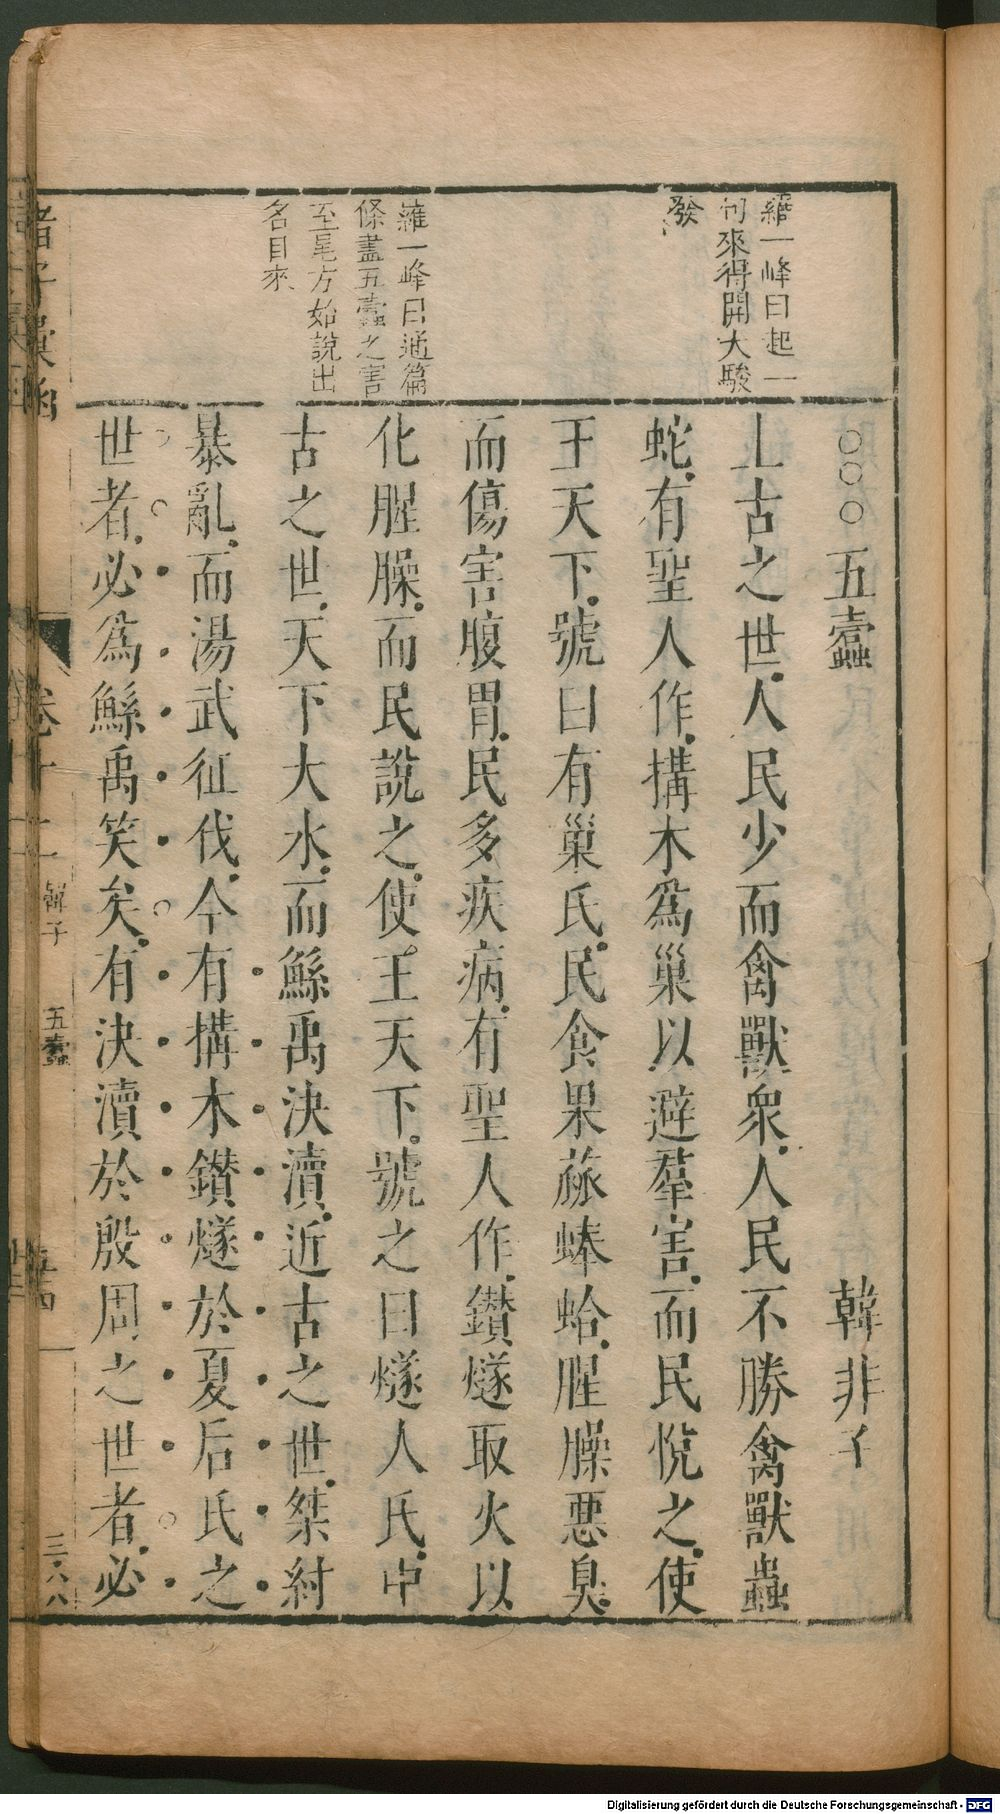 羅一峰曰起一
句來得開大駿
發
羅一峰曰通篇
條盡五蠹之害
至尾方始說出
名目來
○○○五蠹 韓非子
上古之世人民少而禽獸衆人民不勝禽獸蟲
蛇有聖人作搆木爲巢以避羣害而民悅之使
王天下號曰有巢氏民食果蓏蜯蛤腥臊惡臭
而傷害腹胃民多疾病有聖人作鑚燧取火以
化腥臊而民說之使王天下號之曰燧人氏中
古之世天下大水而鯀禹決瀆近古之世桀紂
暴亂而湯武征伐今有搆木鑚燧於夏后氏之
世者必爲鯀禹笑矣有決瀆於殷周之世者必
諸子彙函 卷十二 韓子 五蠹 三六八
Digitalisierung gefördert durch die Deutsche Forschungsgemeinschaft - DFG